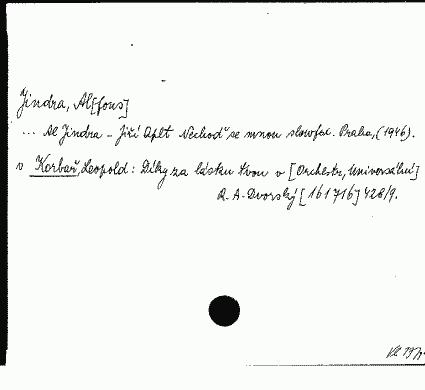 Jindra, Al[fons]
... Al Jindra - Jiří Aplt Nechoď se mnou slowfox. Praha, (1946).
v Korbař, Leopold: Díky za lásku tvou v [Orchestr, Universální]
R. A. Dvorský [161716] 428/9.